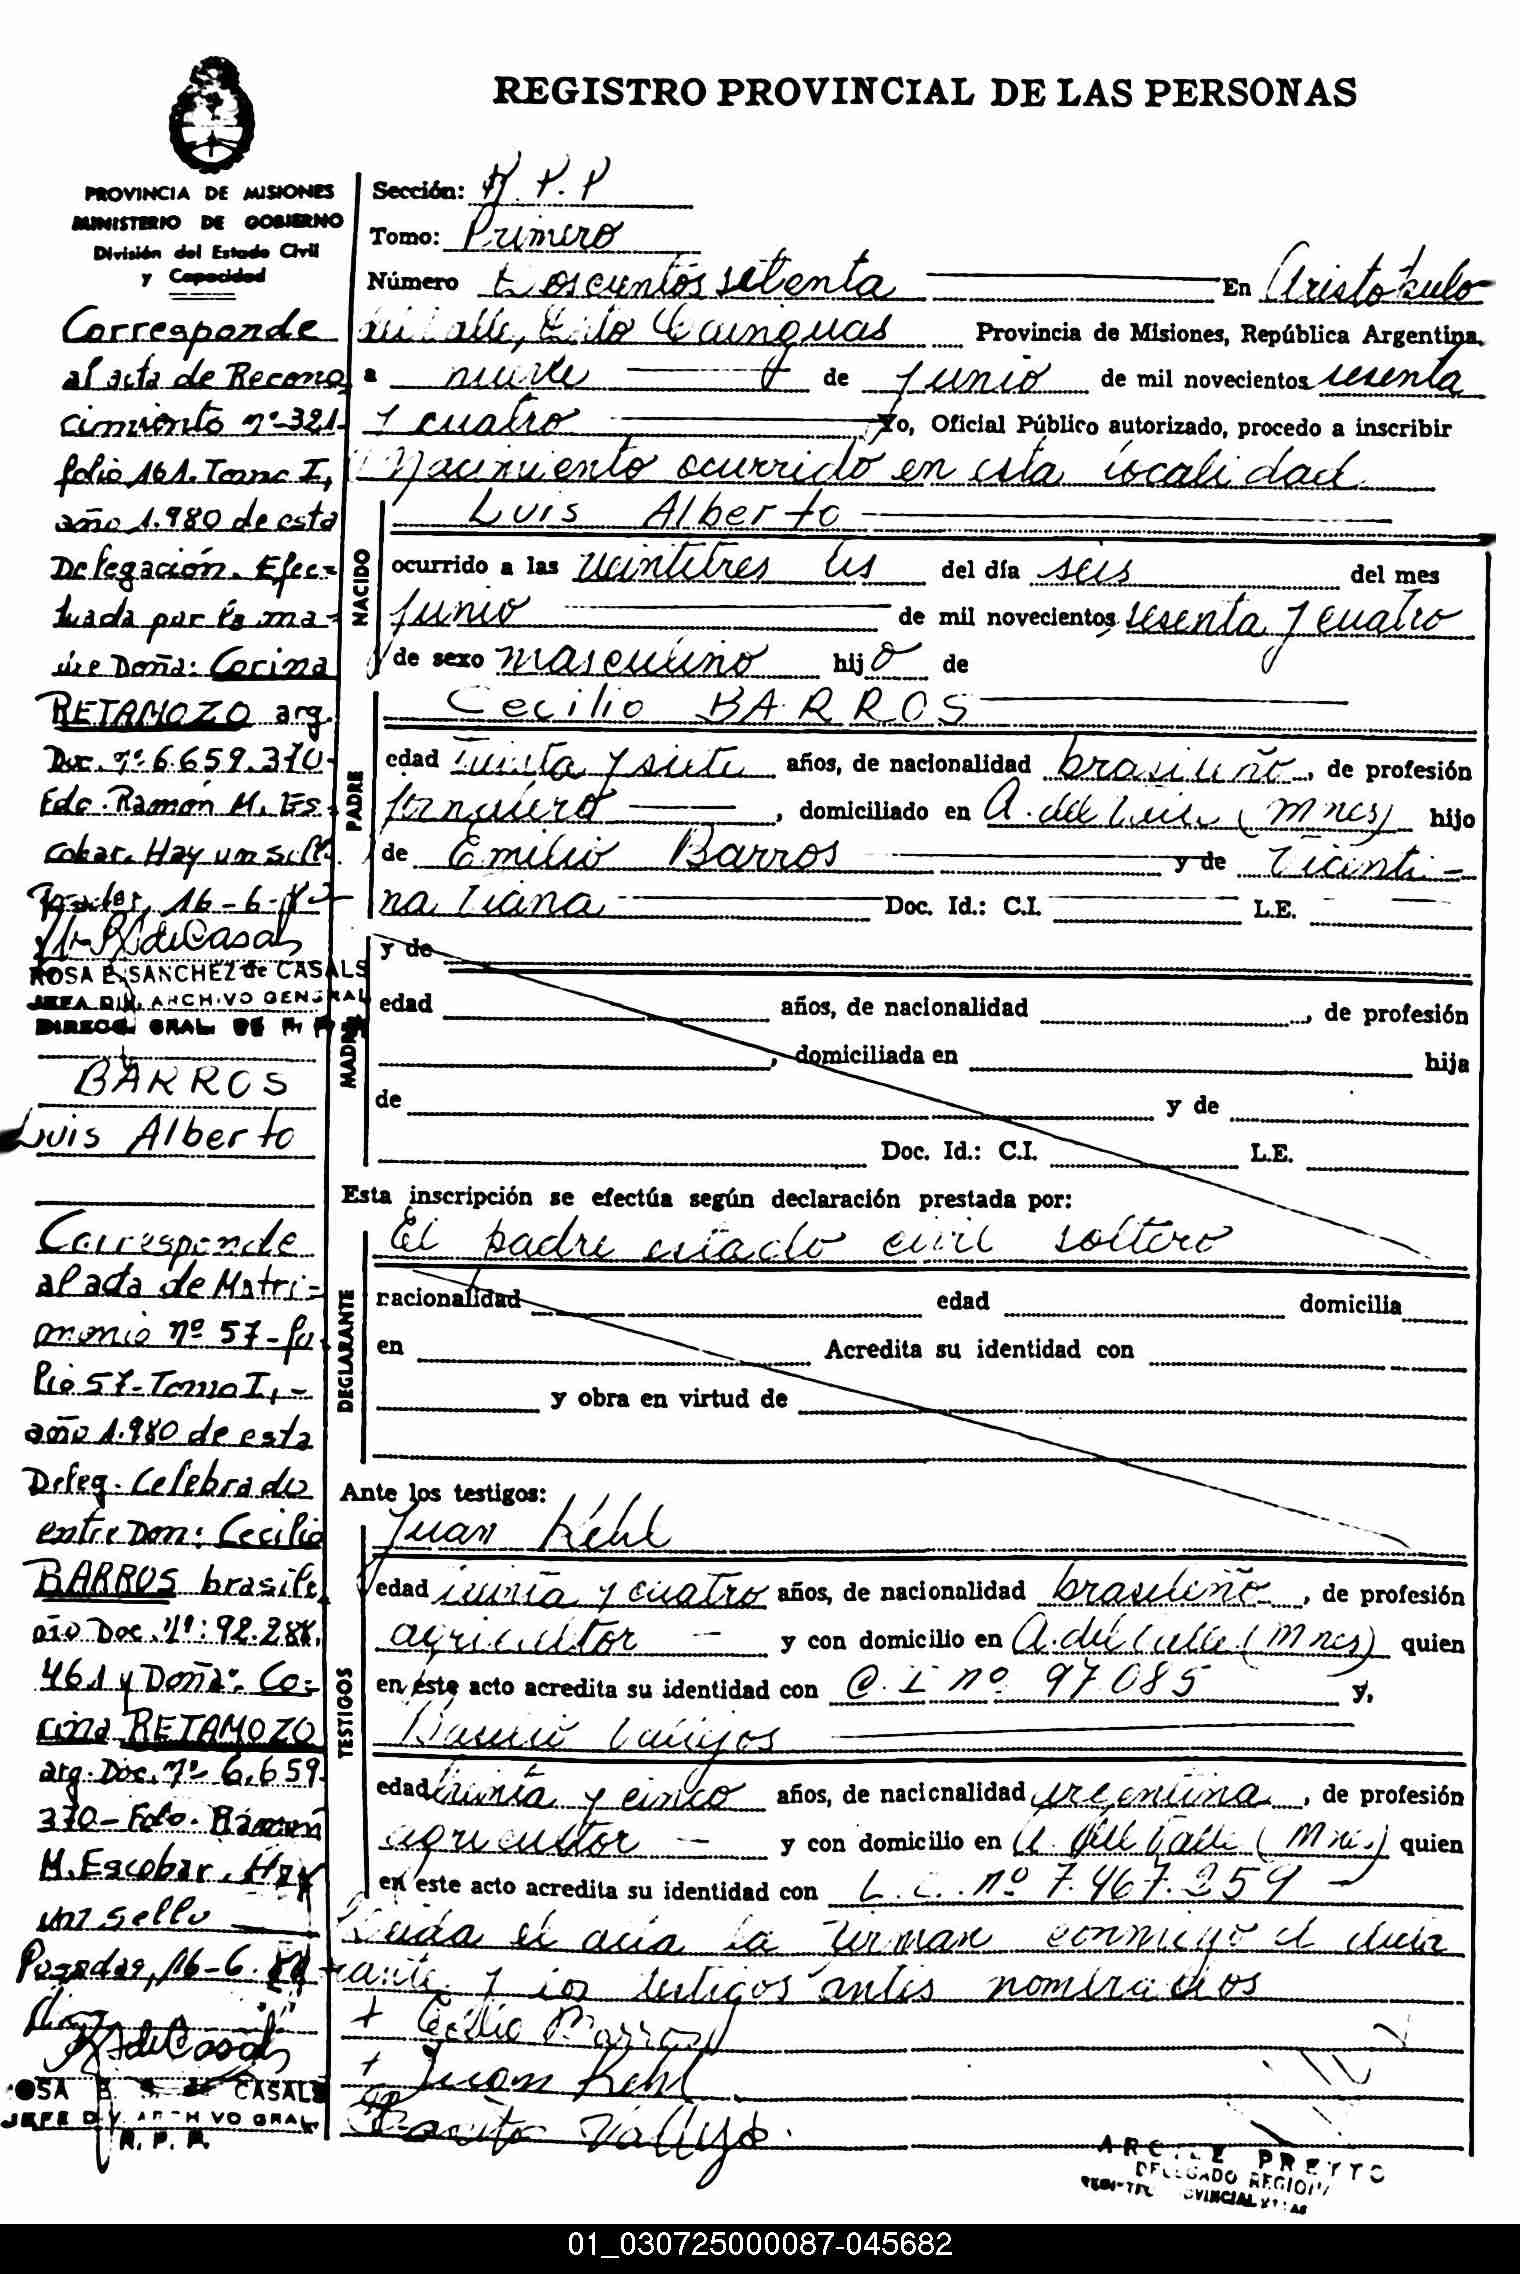 REGISTRO PROVINCIAL DE LAS PERSONAS
PROVINCIA DE MISIONES
MINISTERIO DE GOBIERNO
División del Estado Civil
y Capacidad
Corresponde
al acta de Recono
cimiento nº 321-
folio 161. Tomo I,
año 1.980 de esta
Delegación. Efec-
tuada por la ma-
dre Doña: Corina
RETAMOZO arg.
Doc. nº 6.659.370-
Fdo. Ramón M. Es
cobar. Hay un sello.
16-6-
ROSA E. SANCHEZ de CASALS
JEFA DIV. ARCHIVO GENERAL
DIRECC. GRAL. DE R. P. P.
BARROS
Luis Alberto
Corresponde
al acta de Matri-
monio nº 57-fo
lio 57-Tomo I,-
año 1.980 de esta
Deleg. Celebrado
entre Don: Cecilio
BARROS brasile
ño Doc. Nº: 92.288.
461 y Doña: Co-
rina RETAMOZO
arg. Doc. nº 6.659.
370- Fdo. Ramón
M. Escobar. Hay
un sello
Posadas, 16-6-
ROSA E. S. de CASALS
JEFE DIV. ARCHIVO GRAL.
R. P. P.
Sección: R.P.P
Tomo: Primero
Número Doscientos setenta En Aristobulo
del Valle, Dto Cainguas Provincia de Misiones, República Argentina,
a nueve de Junio de mil novecientos sesenta
y cuatro Yo, Oficial Público autorizado, procedo a inscribir
Nacimiento ocurrido en esta localidad
NACIDO
Luis Alberto
ocurrido a las veintitres hs del día seis del mes
Junio de mil novecientos sesenta y cuatro
de sexo masculino hijo de
PADRE
Cecilio BARROS
edad Treinta y siete años, de nacionalidad brasileño, de profesión
domiciliado en A. del Valle (Mnes) hijo
de Emilio Barros y de Vicenti-
na Viana Doc. Id.: C.I. L.E.
MADRE
y de
edad años, de nacionalidad , de profesión
, domiciliada en hija
de y de
Doc. Id.: C.I. L.E.
Esta inscripción se efectúa según declaración prestada por:
DECLARANTE
El padre estado civil soltero
nacionalidad edad domicilia
en Acredita su identidad con
y obra en virtud de
Ante los testigos:
TESTIGOS
Juan Kehl
edad treinta y cuatro años, de nacionalidad brasileño, de profesión
agricultor y con domicilio en A. del Valle (Mnes) quien
en este acto acredita su identidad con C. I nº 97.085 y,
edad treinta y cinco años, de nacionalidad argentina, de profesión
agricultor y con domicilio en A. del Valle (Mnes) quien
en este acto acredita su identidad con L. E. nº 7.467.259
Leida el acta la firman conmigo el decla
rante y los testigos antes nombrados
Juan Kehl
Vallejo
PRETTO
DELEGADO REGIONAL
01_030725000087-045682